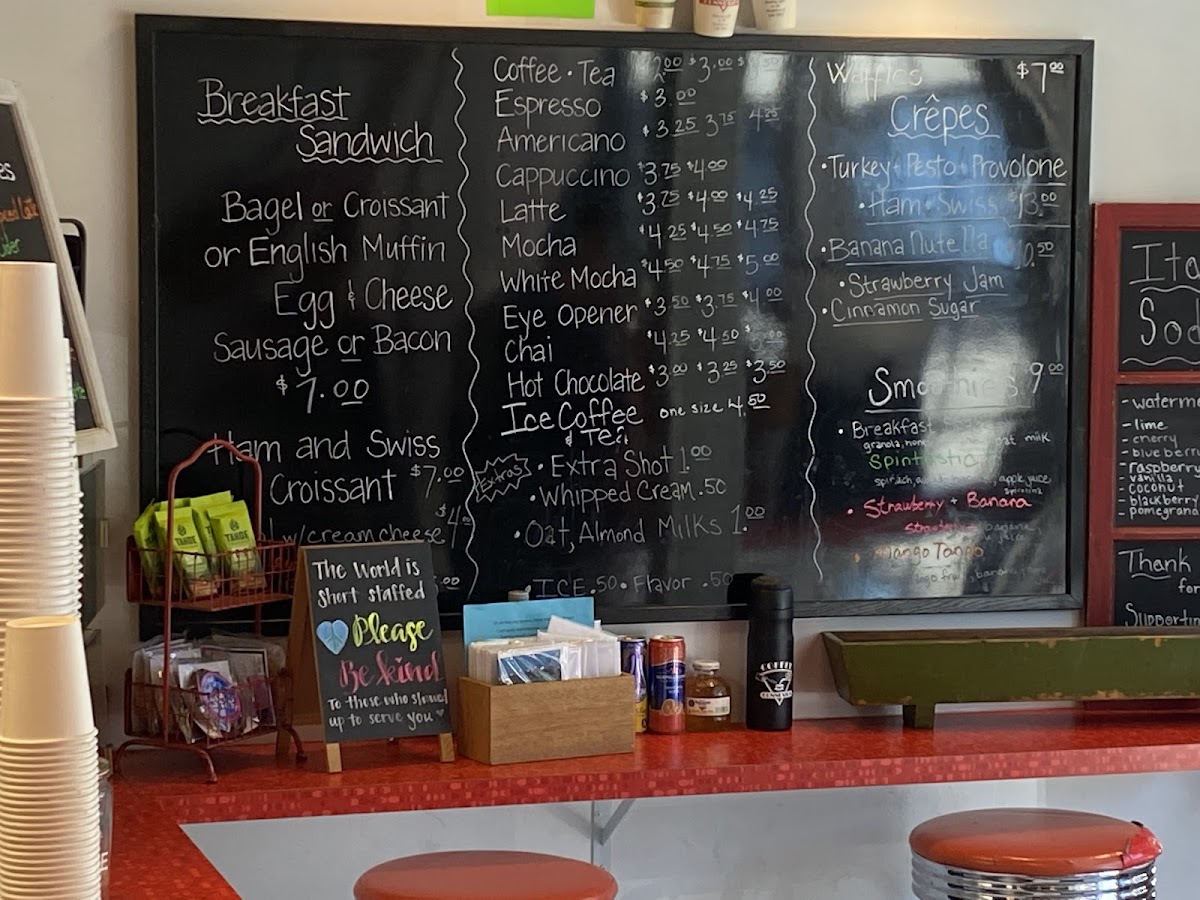 Breakfast
Sandwich
Bagel or Croissant
or English Muffin
Egg & Cheese
Sausage or Bacon
$7.00
Ham and Swiss
Croissant $7.00
w/creamcheese $4
.00
Coffee • Tea 2.00 $3.00 $
Espresso $3.00
Americano $3.25 3.75 4.25
Cappuccino $3.75 $4.00
Latte $3.75 $4.00 $4.25
Mocha $4.25 $4.50 $4.75
White Mocha $4.50 $4.75 $5.00
Eye Opener $3.50 $3.75 $4.00
Chai $4.25 $4.50
Hot Chocolate $3.00 $3.25 $3.50
Ice Coffee one size 4.50
& Tea
Extras
• Extra Shot 1.00
• Whipped Cream .50
• Oat, Almond Milks 1.00
• ICE .50 • Flavor .50
Waffles $7.00
Crêpes
• Turkey • Pesto • Provolone
• Ham • Swiss $13.00
• Banana Nutella 0.50
• Strawberry Jam
• Cinnamon Sugar
Smoothies 9.00
• Breakfast
granola, oat milk
Spintastic
apple juice,
• Strawberry + Banana
• Mango Tango
banana,
The World is
Short staffed
Please
Be kind
To those who showed
up to serve you
Ita
Sod
- waterme
- lime
- cherry
- blueberr
- raspberr
- vanilla
- coconut
- blackberr
- pomegrana
Thank
for
Supportin
TAHOE
COFFEE